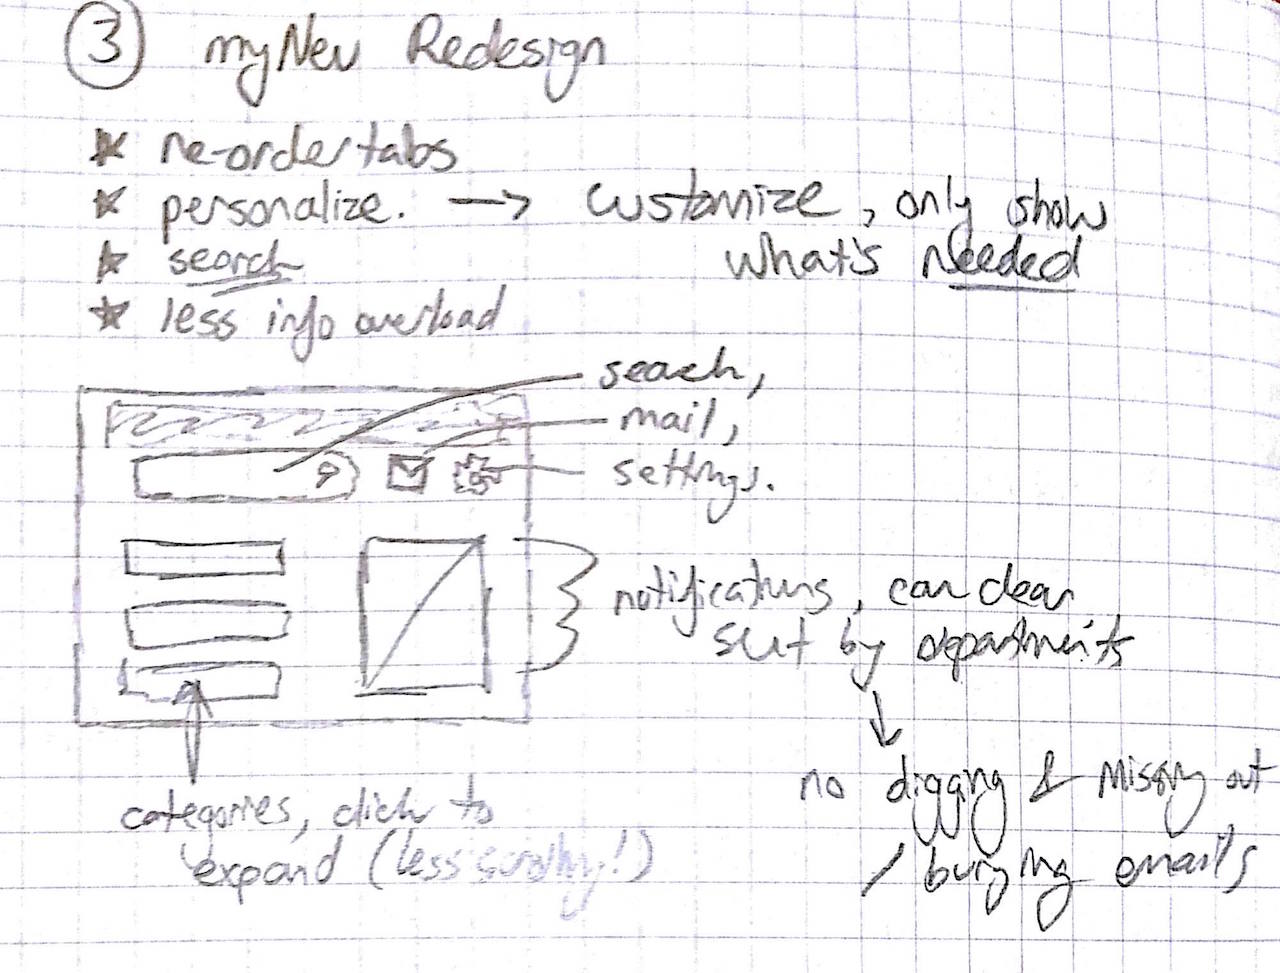 3 myNEU Redesign
re-order tabs
personalize. → customize, only show
what's needed
search
less info overload
search,
mail,
settings.
notifications, can clear
sort by departments
no digging & missing out
/ burying emails
categories, click to
expand (less scrolling!)